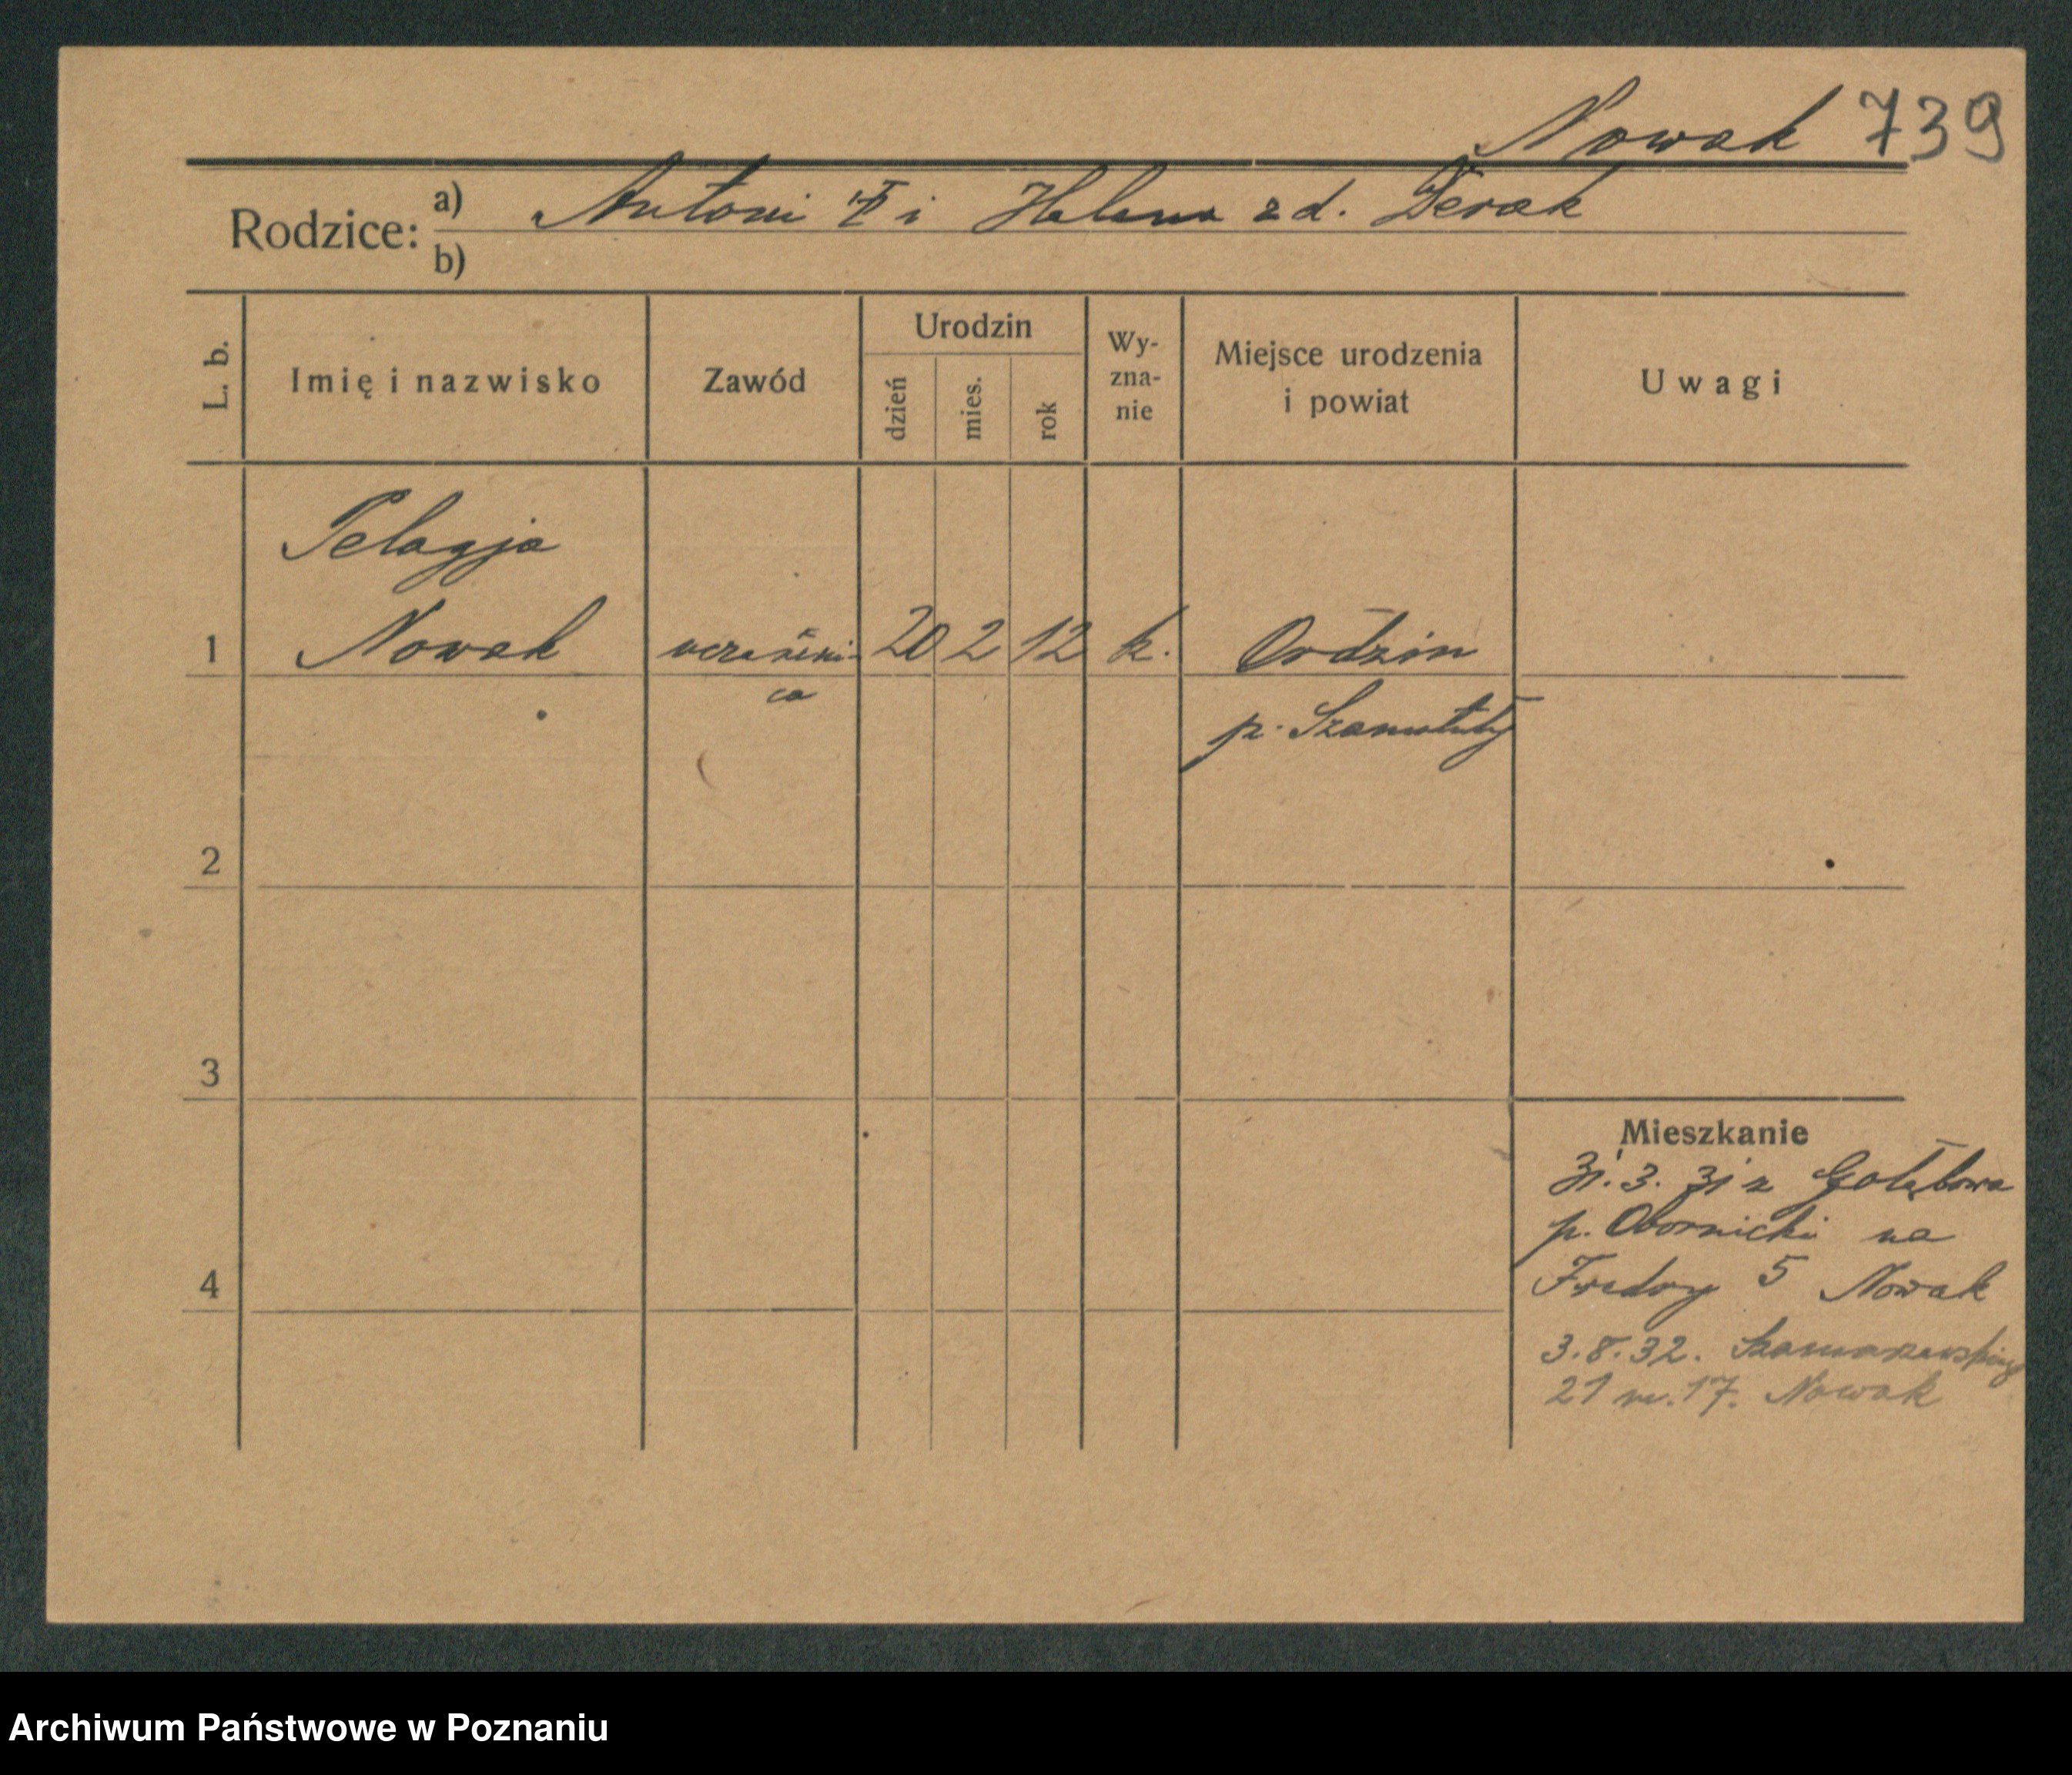 Nowak 739
Rodzice: a) Antoni i Helena zd. Derak
b)
L. b. Imię i nazwisko Zawód Urodzin dzień mies. rok Wy-zna-nie Miejsce urodzenia i powiat Uwagi
Pelagja
1 Nowak uczenni- 20 2 12 k. Ordzin
ca p. Szamotuły
2
3
Mieszkanie
31.3.31 z Gołębowa
p. Obornicki na
4 Fredry 5 Nowak
3.8.32. Szamarzewskiego
21 m.17. Nowak
Archiwum Państwowe w Poznaniu